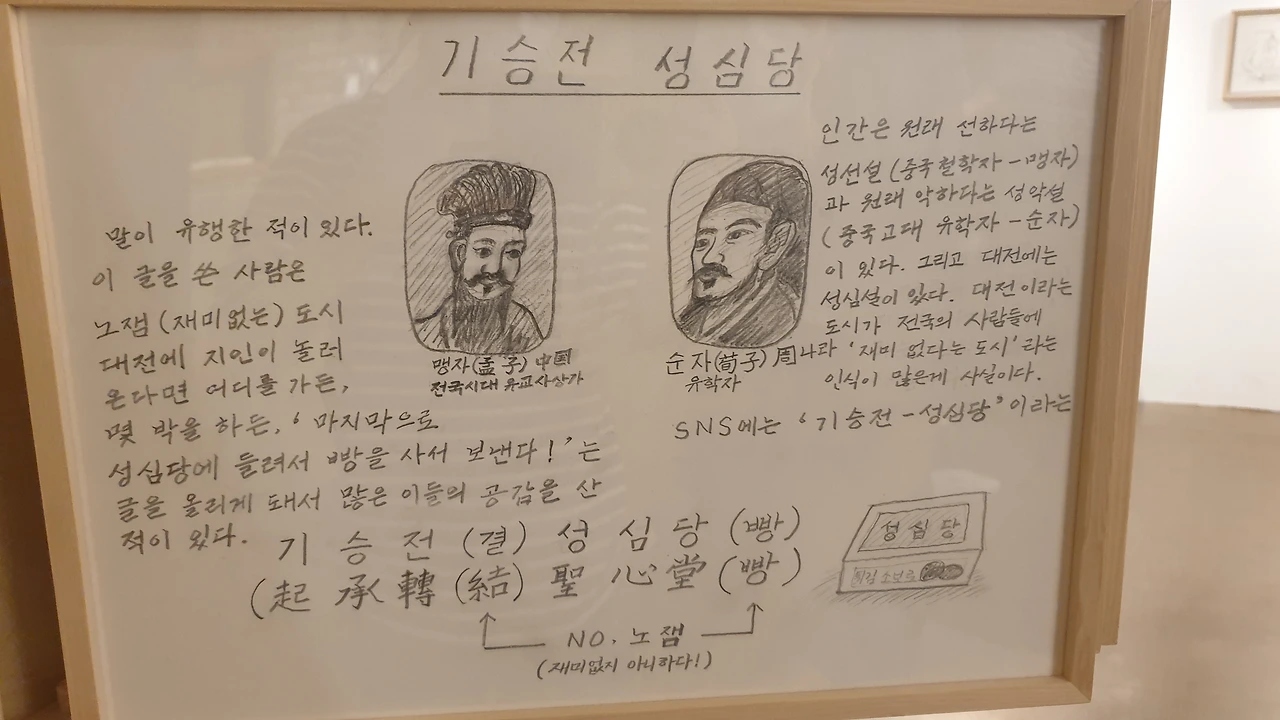 기승전 성심당
인간은 원래 선하다는
성선설 (중국철학자 - 맹자)
과 원래 악하다는 성악설
(중국고대 유학자 - 순자)
이 있다. 그리고 대전에는
성심설이 있다. 대전이라는
도시가 전국의 사람들에
나과 '재미 없다는 도시'라는
인식이 많은게 사실이다.
SNS에는 '기승전 - 성심당'이라는
말이 유행한 적이 있다.
이 글을 쓴 사람은
노잼 (재미없는) 도시
대전에 지인이 놀러
온다면 어디를 가든,
몇 박을 하든, '마지막으로
성심당에 들려서 빵을 사서 보낸다!'는
글을 올리게 돼서 많은 이들의 공감을 산
적이 있다.
맹자(孟子) 中国
전국시대 유교사상가
순자(荀子) 周
유학자
기 승 전 (결) 성 심 당 (빵)
(起 承 轉 (結) 聖 心 堂 (빵)
NO. 노잼
(재미없지 아니하다!)
성심당
튀김소보로